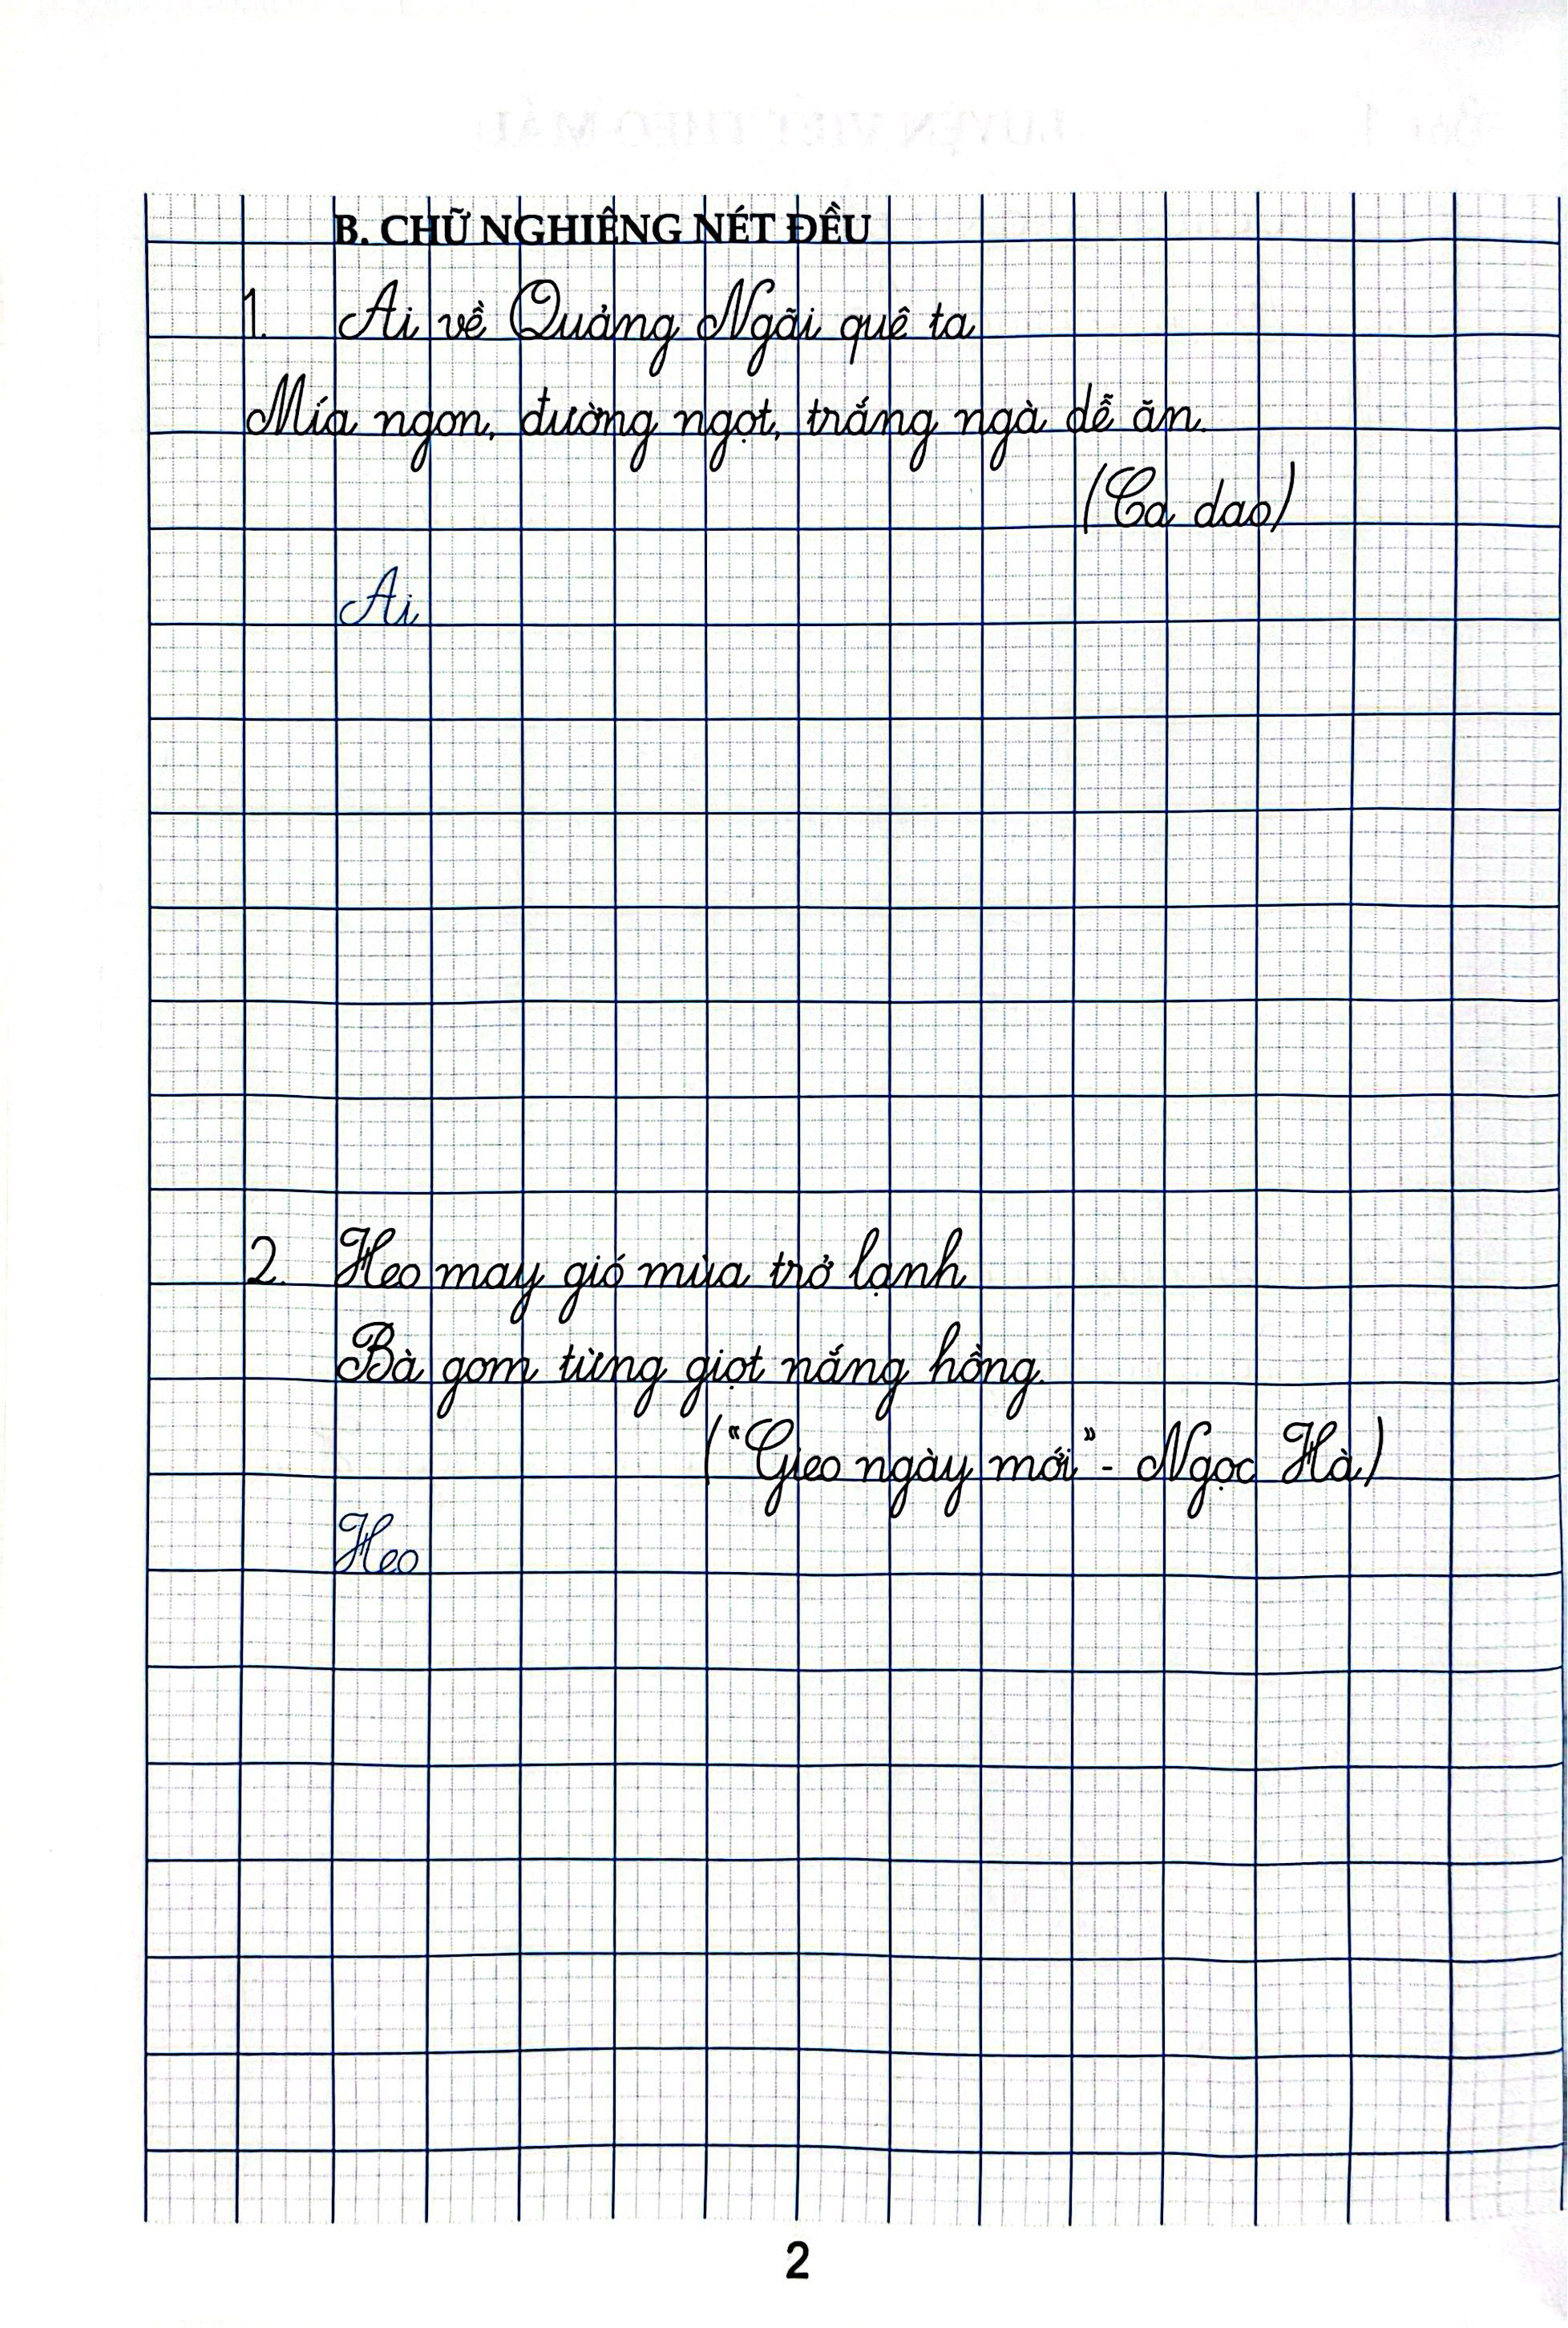 B. CHỮ NGHIÊNG NÉT ĐỀU
1. Ai về Quảng Ngãi quê ta
Mía ngon, đường ngọt, trắng ngà dễ ăn.
(Ca dao)
Ai
2. Heo may gió mùa trở lạnh
Bà gom từng giọt nắng hồng.
("Gieo ngày mới" - Ngọc Hà)
Heo
2